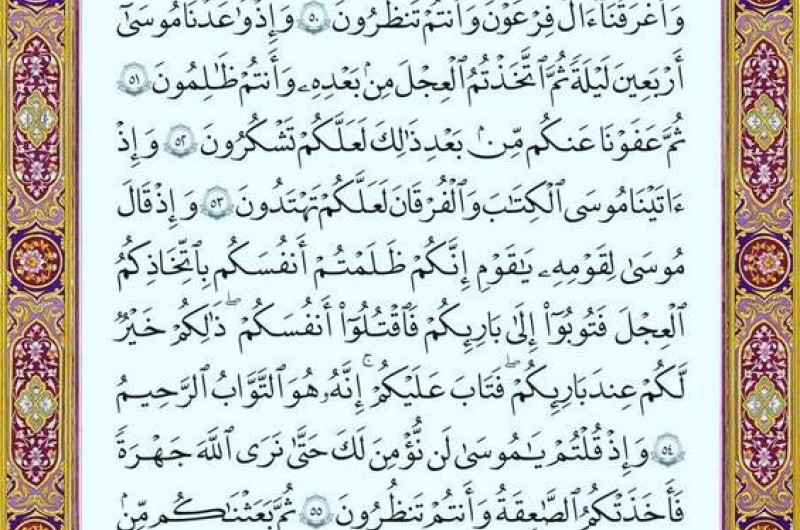 وَأَغْرَقْنَآ ءَالَ فِرْعَوْنَ وَأَنتُمْ تَنظُرُونَ ٥٠ وَإِذْ وَٰعَدْنَا مُوسَىٰٓ
أَرْبَعِينَ لَيْلَةً ثُمَّ ٱتَّخَذْتُمُ ٱلْعِجْلَ مِنۢ بَعْدِهِۦ وَأَنتُمْ ظَٰلِمُونَ ٥١
ثُمَّ عَفَوْنَا عَنكُم مِّنۢ بَعْدِ ذَٰلِكَ لَعَلَّكُمْ تَشْكُرُونَ ٥٢ وَإِذْ
ءَاتَيْنَا مُوسَى ٱلْكِتَٰبَ وَٱلْفُرْقَانَ لَعَلَّكُمْ تَهْتَدُونَ ٥٣ وَإِذْ قَالَ
مُوسَىٰ لِقَوْمِهِۦ يَٰقَوْمِ إِنَّكُمْ ظَلَمْتُمْ أَنفُسَكُم بِٱتِّخَاذِكُمُ
ٱلْعِجْلَ فَتُوبُوٓا۟ إِلَىٰ بَارِئِكُمْ فَٱقْتُلُوٓا۟ أَنفُسَكُمْ ۖ ذَٰلِكُمْ خَيْرٌ
لَّكُمْ عِندَ بَارِئِكُمْ ۖ فَتَابَ عَلَيْكُمْ ۚ إِنَّهُۥ هُوَ ٱلتَّوَّابُ ٱلرَّحِيمُ
٥٤ وَإِذْ قُلْتُمْ يَٰمُوسَىٰ لَن نُّؤْمِنَ لَكَ حَتَّىٰ نَرَى ٱللَّهَ جَهْرَةً
فَأَخَذَتْكُمُ ٱلصَّٰعِقَةُ وَأَنتُمْ تَنظُرُونَ ٥٥ ثُمَّ بَعَثْنَٰكُم مِّنۢ